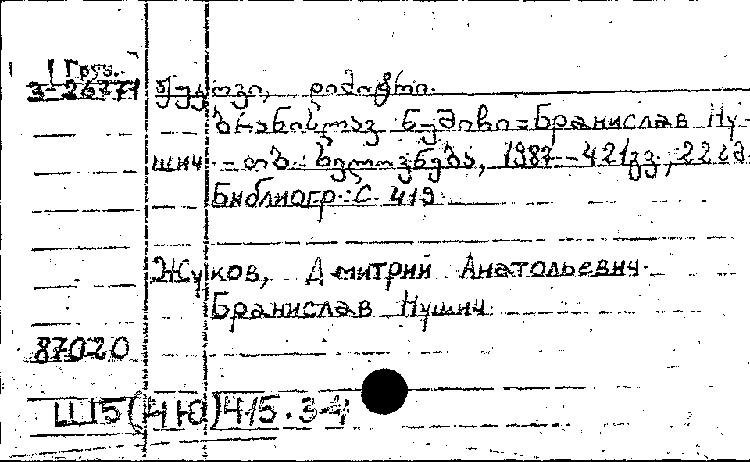 1 Груз.
3-26771
ჟუკოვი, დიმიტრი.
ბრანისლავ ნუშიჩი=Бранислав Ну-
шич. - თბ.: ხელოვნება, 1987.-421გვ.; 22სმ
Библиогр.: С. 419.
Жуков, Дмитрий Анатольевич.
Бранислав Нушич.
87020
Ш5(4Ю)4/5.3-4